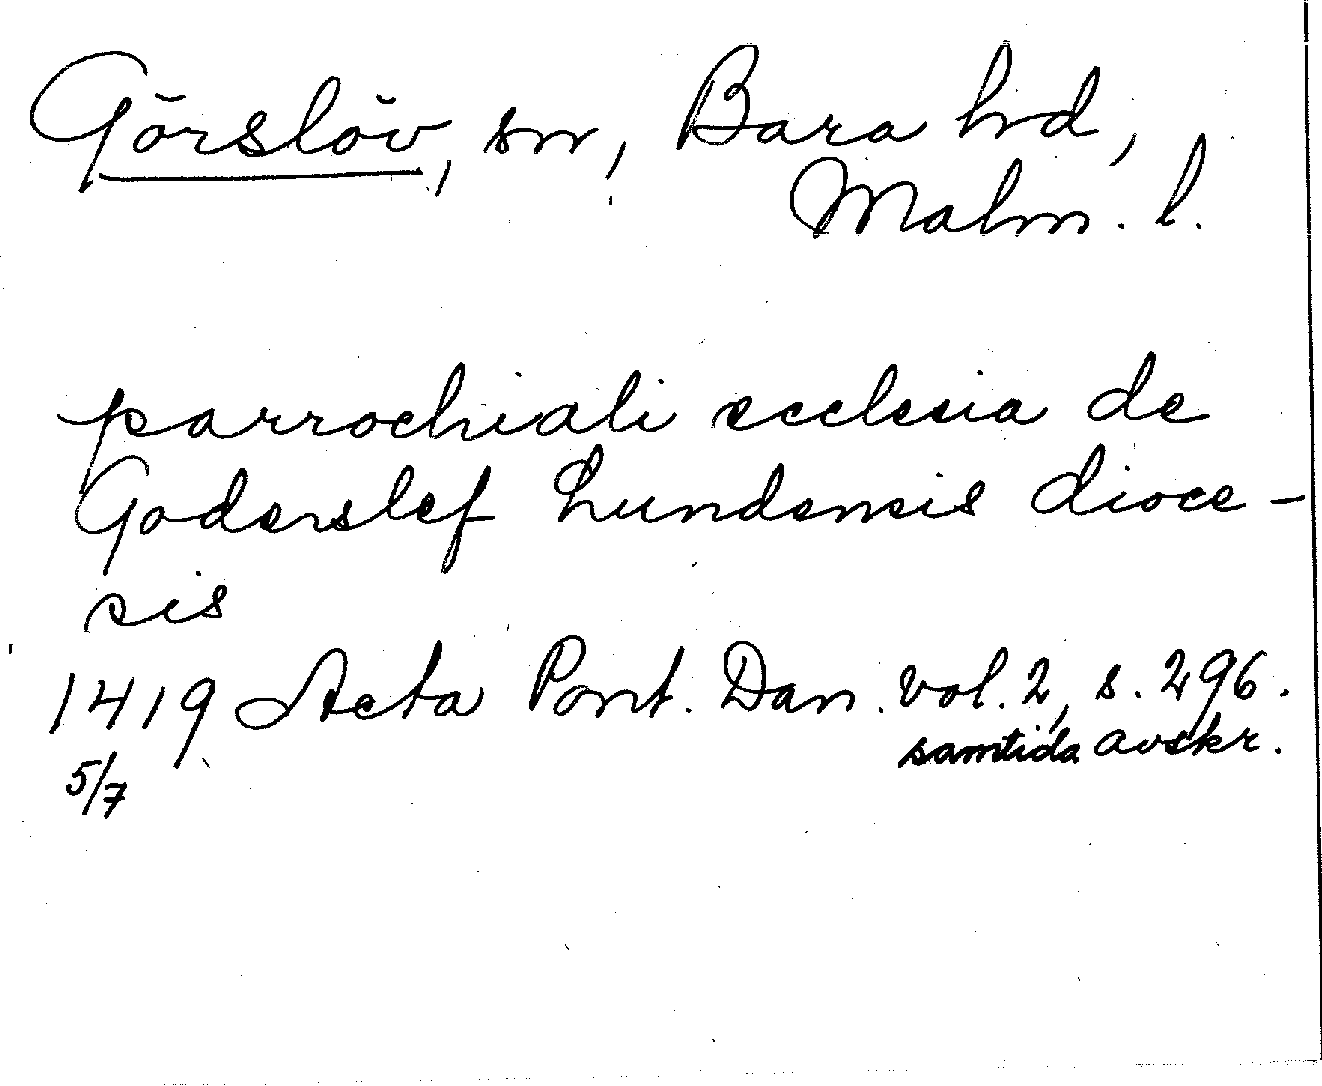 Görslöv, sn, Bara hd,
Malm. l.
parrochiali ecclesia de
Goderslef Lundensis dioce-
sis
1419 Acta Pont. Dan. vol. 2, s. 296.
samtida avskr.
5/7